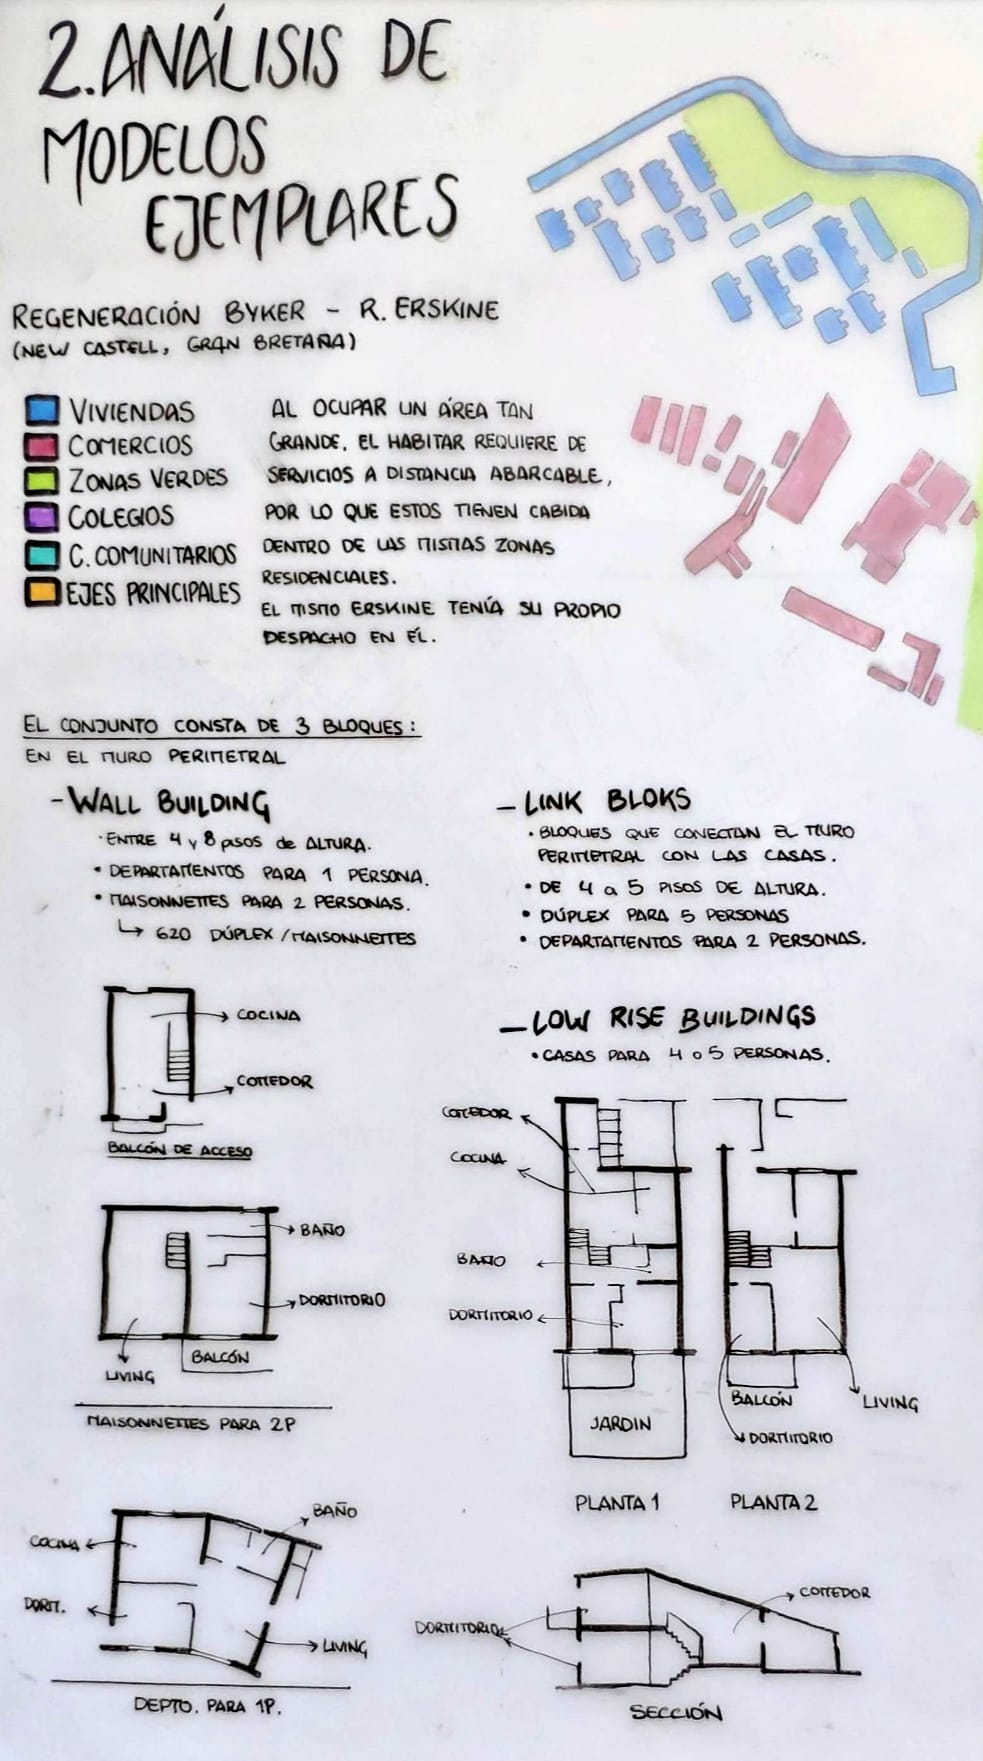 2. ANÁLISIS DE
MODELOS
EJEMPLARES
REGENERACIÓN BYKER - R. ERSKINE
(NEW CASTELL, GRAN BRETAÑA)
VIVIENDAS
COMERCIOS
ZONAS VERDES
COLEGIOS
C. COMUNITARIOS
EJES PRINCIPALES
AL OCUPAR UN ÁREA TAN
GRANDE, EL HABITAR REQUIERE DE
SERVICIOS A DISTANCIA ABARCABLE,
POR LO QUE ESTOS TIENEN CABIDA
DENTRO DE LAS MISMAS ZONAS
RESIDENCIALES.
EL MISMO ERSKINE TENÍA SU PROPIO
DESPACHO EN ÉL.
EL CONJUNTO CONSTA DE 3 BLOQUES:
EN EL MURO PERIMETRAL
- WALL BUILDING
· ENTRE 4 y 8 pisos de ALTURA.
• DEPARTAMENTOS PARA 1 PERSONA.
• MAISONNETTES PARA 2 PERSONAS.
↳ 620 DÚPLEX / MAISONNETTES
COCINA
COMEDOR
BALCÓN DE ACCESO
BAÑO
DORMITORIO
LIVING
BALCÓN
MAISONNETTES PARA 2P
BAÑO
COCINA
DORM.
LIVING
DEPTO. PARA 1P.
- LINK BLOKS
• BLOQUES QUE CONECTAN EL MURO
PERIMETRAL CON LAS CASAS.
• DE 4 a 5 PISOS DE ALTURA.
• DÚPLEX PARA 5 PERSONAS
• DEPARTAMENTOS PARA 2 PERSONAS.
- LOW RISE BUILDINGS
• CASAS PARA 4 o 5 PERSONAS.
COMEDOR
COCINA
BAÑO
DORMITORIO
JARDIN
BALCÓN
LIVING
DORMITORIO
PLANTA 1
PLANTA 2
COMEDOR
DORMITORIO
SECCIÓN